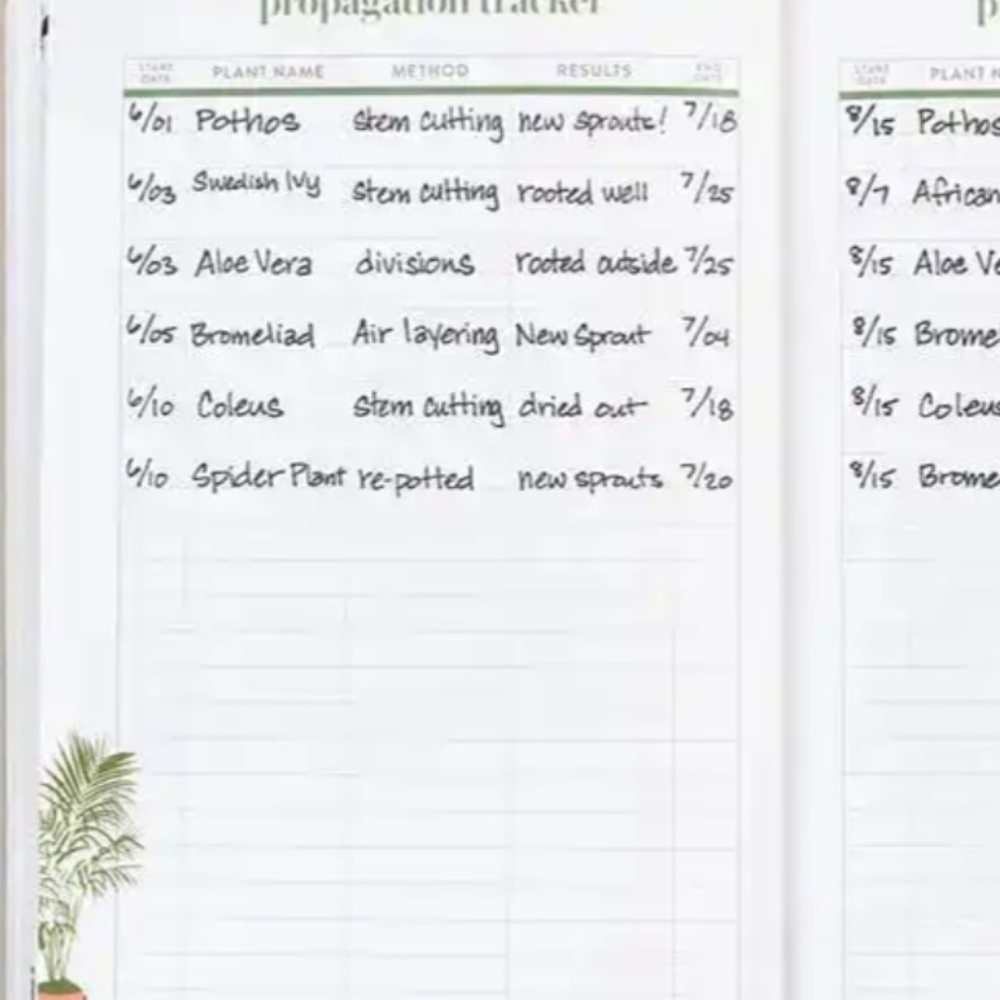 propagation tracker
START DATE PLANT NAME METHOD RESULTS END DATE
6/01 Pothos stem cutting new sprouts! 7/18
6/03 Swedish Ivy stem cutting rooted well 7/25
6/03 Aloe Vera divisions rooted outside 7/25
6/05 Bromeliad Air layering New Sprout 7/04
6/10 Coleus stem cutting dried out 7/18
6/10 Spider Plant re-potted new sprouts 7/20
p
START DATE PLANT N
8/15 Pothos
8/7 African
8/15 Aloe Ve
8/15 Brome
8/15 Coleus
8/15 Brome